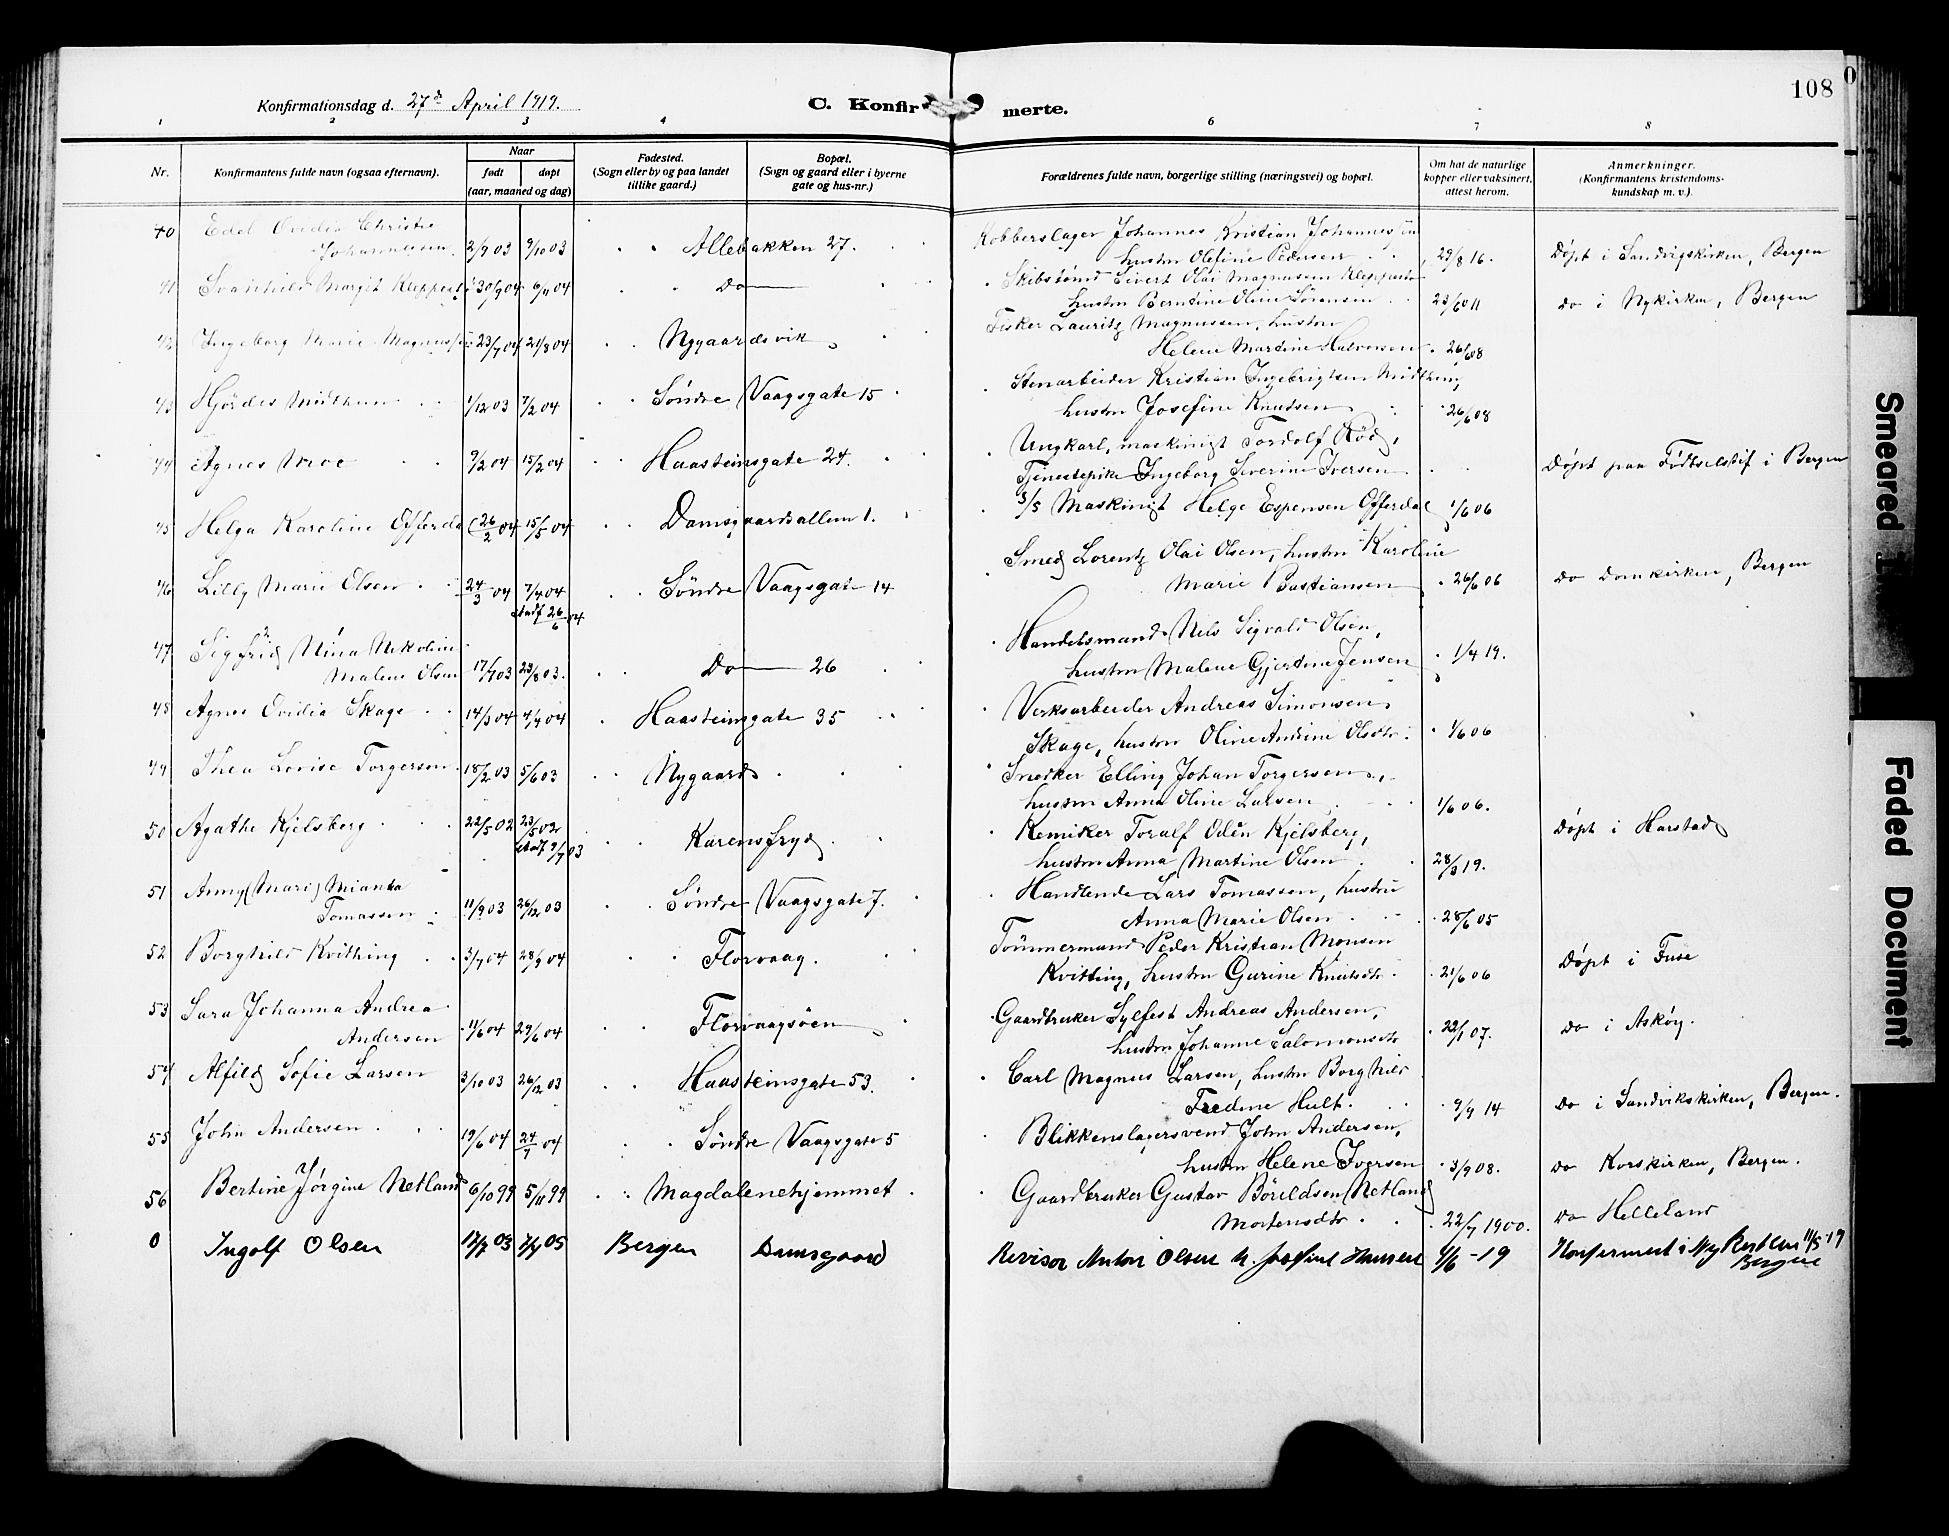 108
Konfirmationsdag d. 27de April 1919.
C. Konfirmerte.
1 2 3 4 6 7 8
Nr.
Konfirmantens fulde navn (ogsaa efternavn).
Naar
født døpt
(aar, maaned og dag)
Fødested.
(Sogn eller by og paa landet
tillike gaard.)
Bopæl.
(Sogn og gaard eller i byerne
gate og hus-nr.)
Forældrenes fulde navn, borgerlige stilling (næringsvei) og bopæl.
Om hat de naturlige
kopper eller vaksinert,
attest herom.
Anmerkninger.
(Konfirmantens kristendoms-
kundskap m. v.).
40 Edel Ovidia Christie Kobberslager Johannes Kristian Johannessen
Johannessen. 2/9 03 9/10 03 Allebakken 27. hustru Olefine Pedersen 29/8 16. Døpt i Sandvigskirken, Bergen
41 Svanhild Margit Kleppestø 30/9 04 6/11 04 Do Skibstømd Sivert Olai Magnussen Kleppestø
hustru Berntine Oline Sørensen 23/6 011 do i Nykirken, Bergen
42 Ingeborg Marie Magnussen 23/7 04 21/8 04 Nygaardsvik Fisker Lauritz Magnussen, hustru
Helene Martine Halvorsen 26/6 08
43 Hjørdis Midthun 1/12 03 7/2 04 Søndre Vaagsgate 15 Stenarbeider Kristian Ingebrigtsen Midthun,
hustru Josefine Knudsen 26/6 08
44 Agnes Moe 9/2 04 15/2 04 Haasteinsgate 24. Ungkarl, maskinist Tordolf Rød,
Tjenestepike Ingeborg Severine Iversen Døpt paa Fødselsstif i Bergen
45 Helga Karoline Offerdal 26/2 04 15/5 04 Damsgaardsalleen 1. 3/5 Maskinist Helge Espensen Offerdal 1/6 06
46 Lilly Marie Olsen 24/3 04 7/4 04 Søndre Vaagsgate 14 Smed Lorentz Olai Olsen, hustru Karoline
stadf 26/6 04 Marie Bastiansen 26/6 06 do Domkirken, Bergen
47 Sigfrid Nina Nikoline Handelsmand Nils Sigvald Olsen,
Malene Olsen 17/7 03 23/8 03. Do 26 hustru Malene Gjertine Jensen 1/4 19.
48 Agnes Ovidia Skage 14/3 04 4/4 04 Haasteinsgate 35 Verksarbeider Andreas Simonsen
Skage, hustru Oline Andrine Olsdtr. 1/6 06
49 Thea Lovise Torgersen 18/2 03 5/6 03 Nygaard Snedker Elling Johan Torgersen,
hustru Anna Oline Larsen 1/6 06.
50 Agathe Kjelsberg 22/5 02 23/5 02 Karensfryd Kemiker Toralf Odin Kjelsberg,
stadf 9/7 03 hustru Anna Martine Olsen 28/3 19. Døpt i Harstad
51 Anny (Mari) Mianka Handlende Lars Tomassen, hustru
Tomassen 11/9 03 26/12 03 Søndre Vaagsgate 7. Anna Marie Olsen 28/6 05
52 Borghild Kvitting 3/7 04 28/9 04 Florvaag. Tømmermand Peder Kristian Monsen
Kvitting, hustru Gurine Knutsdtr. 21/6 06 Døpt i Fuse
53 Sara Johanna Andrea Gaardbruker Sylfest Andreas Andersen,
Andersen 11/6 04 29/6 04 Florvaagsøen hustru Johanne Salomonsdtr 22/1 07. do i Askøy.
54 Alfild Sofie Larsen 3/10 03 26/12 03 Haasteinsgate 53. Carl Magnus Larsen, hustru Borghild
Fredine Hult. 9/4 14 do i Sandvikskirken, Bergen.
55 John Andersen 19/6 04 24/7 04 Søndre Vaagsgate 5 Blikkenslagersvend John Andersen,
hustru Helene Iversen 3/9 08. do Korskirken, Bergen.
56 Bertine Jørgine Netland 6/10 99 5/11 99 Magdalenehjemmet Gaardbruker Gustav Børildsen Netland
Mortensdtr 22/7 1900. do Helleland
0 Ingolf Olsen 12/7 03 7/4 05 Bergen Damsgaard Revisor Anton Olsen h. Josefine Hansen 4/6-19 Konfirmert i Nykirken 11/5 19
Bergen
Smeared
Faded Document